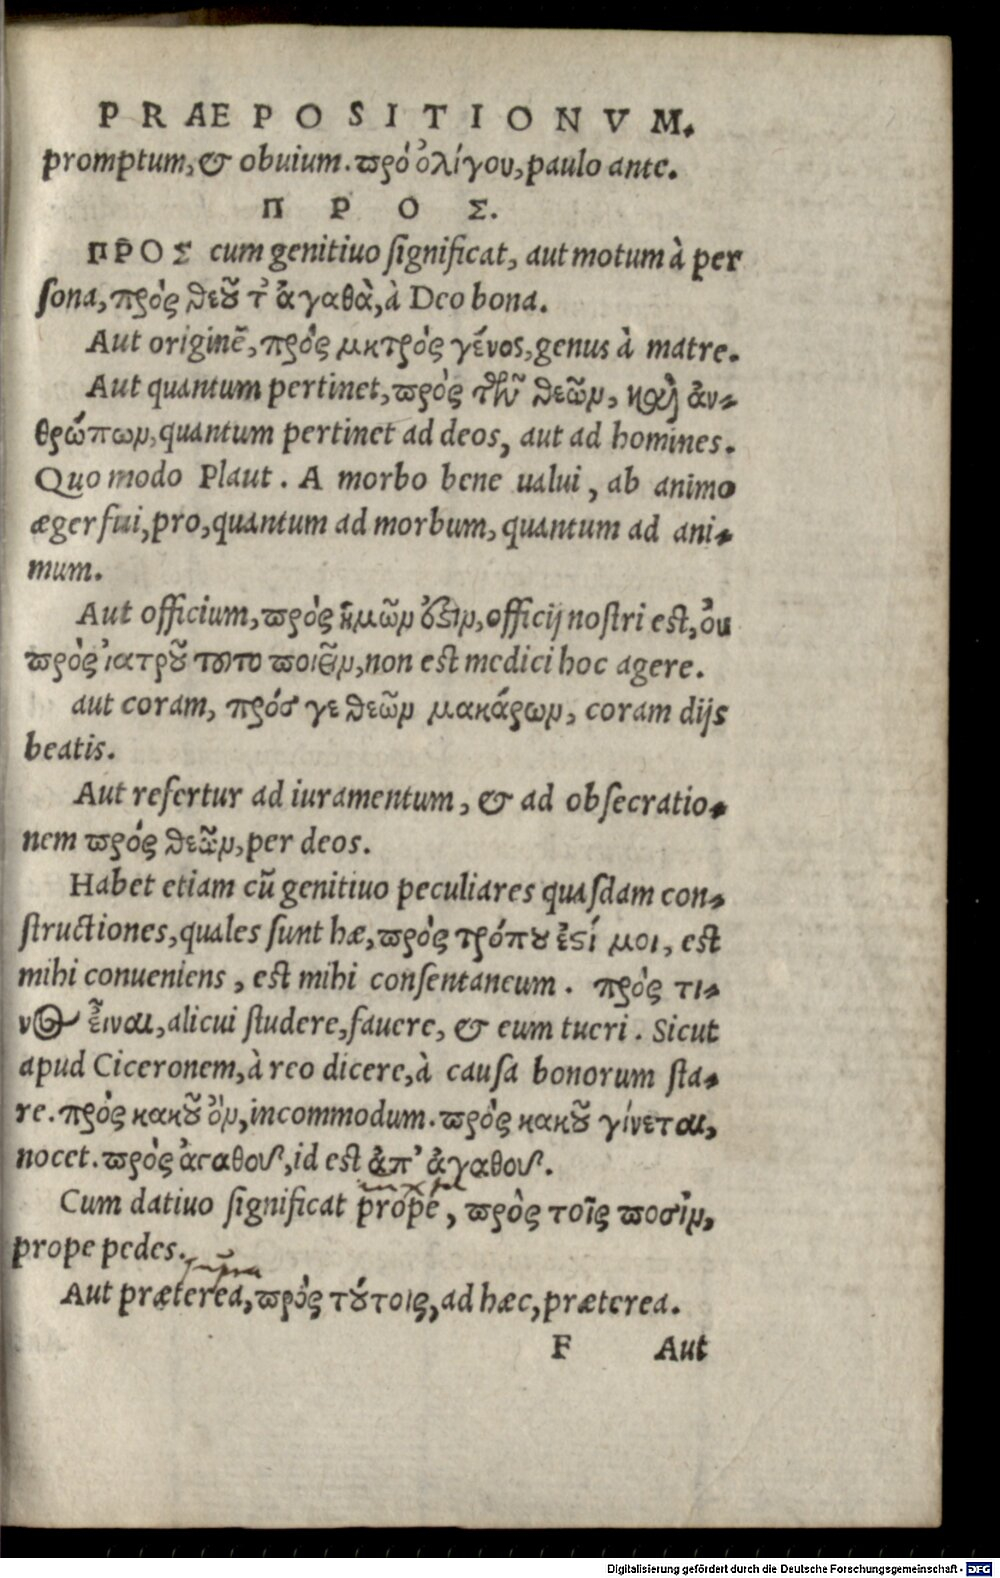 PRAEPOSITIONVM.
promptum, & obuium. πρὸ ὀλίγου, paulo ante.
ΠΡΟΣ.
ΠΡΟΣ cum genitiuo significat, aut motum à per
sona, πρὸς θεοῦ τ' ἀγαθὰ, à Deo bona.
Aut originē, πρὸς μητρὸς γένος, genus à matre.
Aut quantum pertinet, πρὸς τῶν θεῶν, καὶ ἀν-
θρώπων, quantum pertinet ad deos, aut ad homines.
Quomodo Plaut. A morbo bene ualui, ab animo
æger fui, pro, quantum ad morbum, quantum ad ani-
mum.
Aut officium, πρὸς ἡμῶν ὅζιν, officij nostri est, ὀυ
πρὸς ἰατροῦ τοῦτο ποιεῖν, non est medici hoc agere.
aut coram, πρός γε θεῶν μακάρων, coram dijs
beatis.
Aut refertur ad iuramentum, & ad obsecratio-
nem πρὸς θεῶν, per deos.
Habet etiam cū genitiuo peculiares quasdam con-
structiones, quales sunt hæ, πρὸς τρόπου ἐστί μοι, est
mihi conueniens, est mihi consentaneum. πρὸς τι-
νος εἶναι, alicui studere, fauere, & eum tueri. Sicut
apud Ciceronem, à reo dicere, à causa bonorum sta-
re. πρὸς κακοῦ ὂν, incommodum. πρὸς κακοῦ γίνεται,
nocet. πρὸς ἀγαθοῦ, id est ἀπ' ἀγαθοῦ.
Cum datiuo significat prope, πρὸς τοῖς ποσὶν,
prope pedes.
supra
Aut præterea, πρὸς τούτοις, ad hæc, præterea.
F Aut
Digitalisierung gefördert durch die Deutsche Forschungsgemeinschaft - DFG